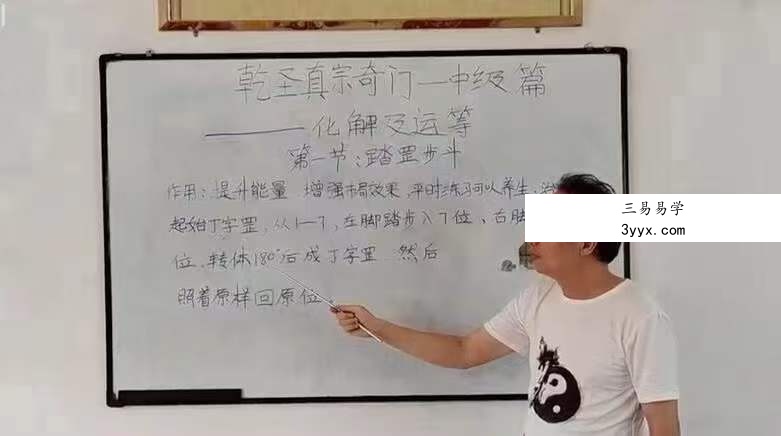 乾圣真宗奇门—中级篇
———化解及运筹
第一节：踏罡步斗
作用：提升能量 增强布局效果，平时练习可以养生，治
起始丁字罡，从1—7，左脚踏步入7位、右脚
位、转体180°后成丁字罡 然后
照着原样回原位。
三易易学
3yyx.com